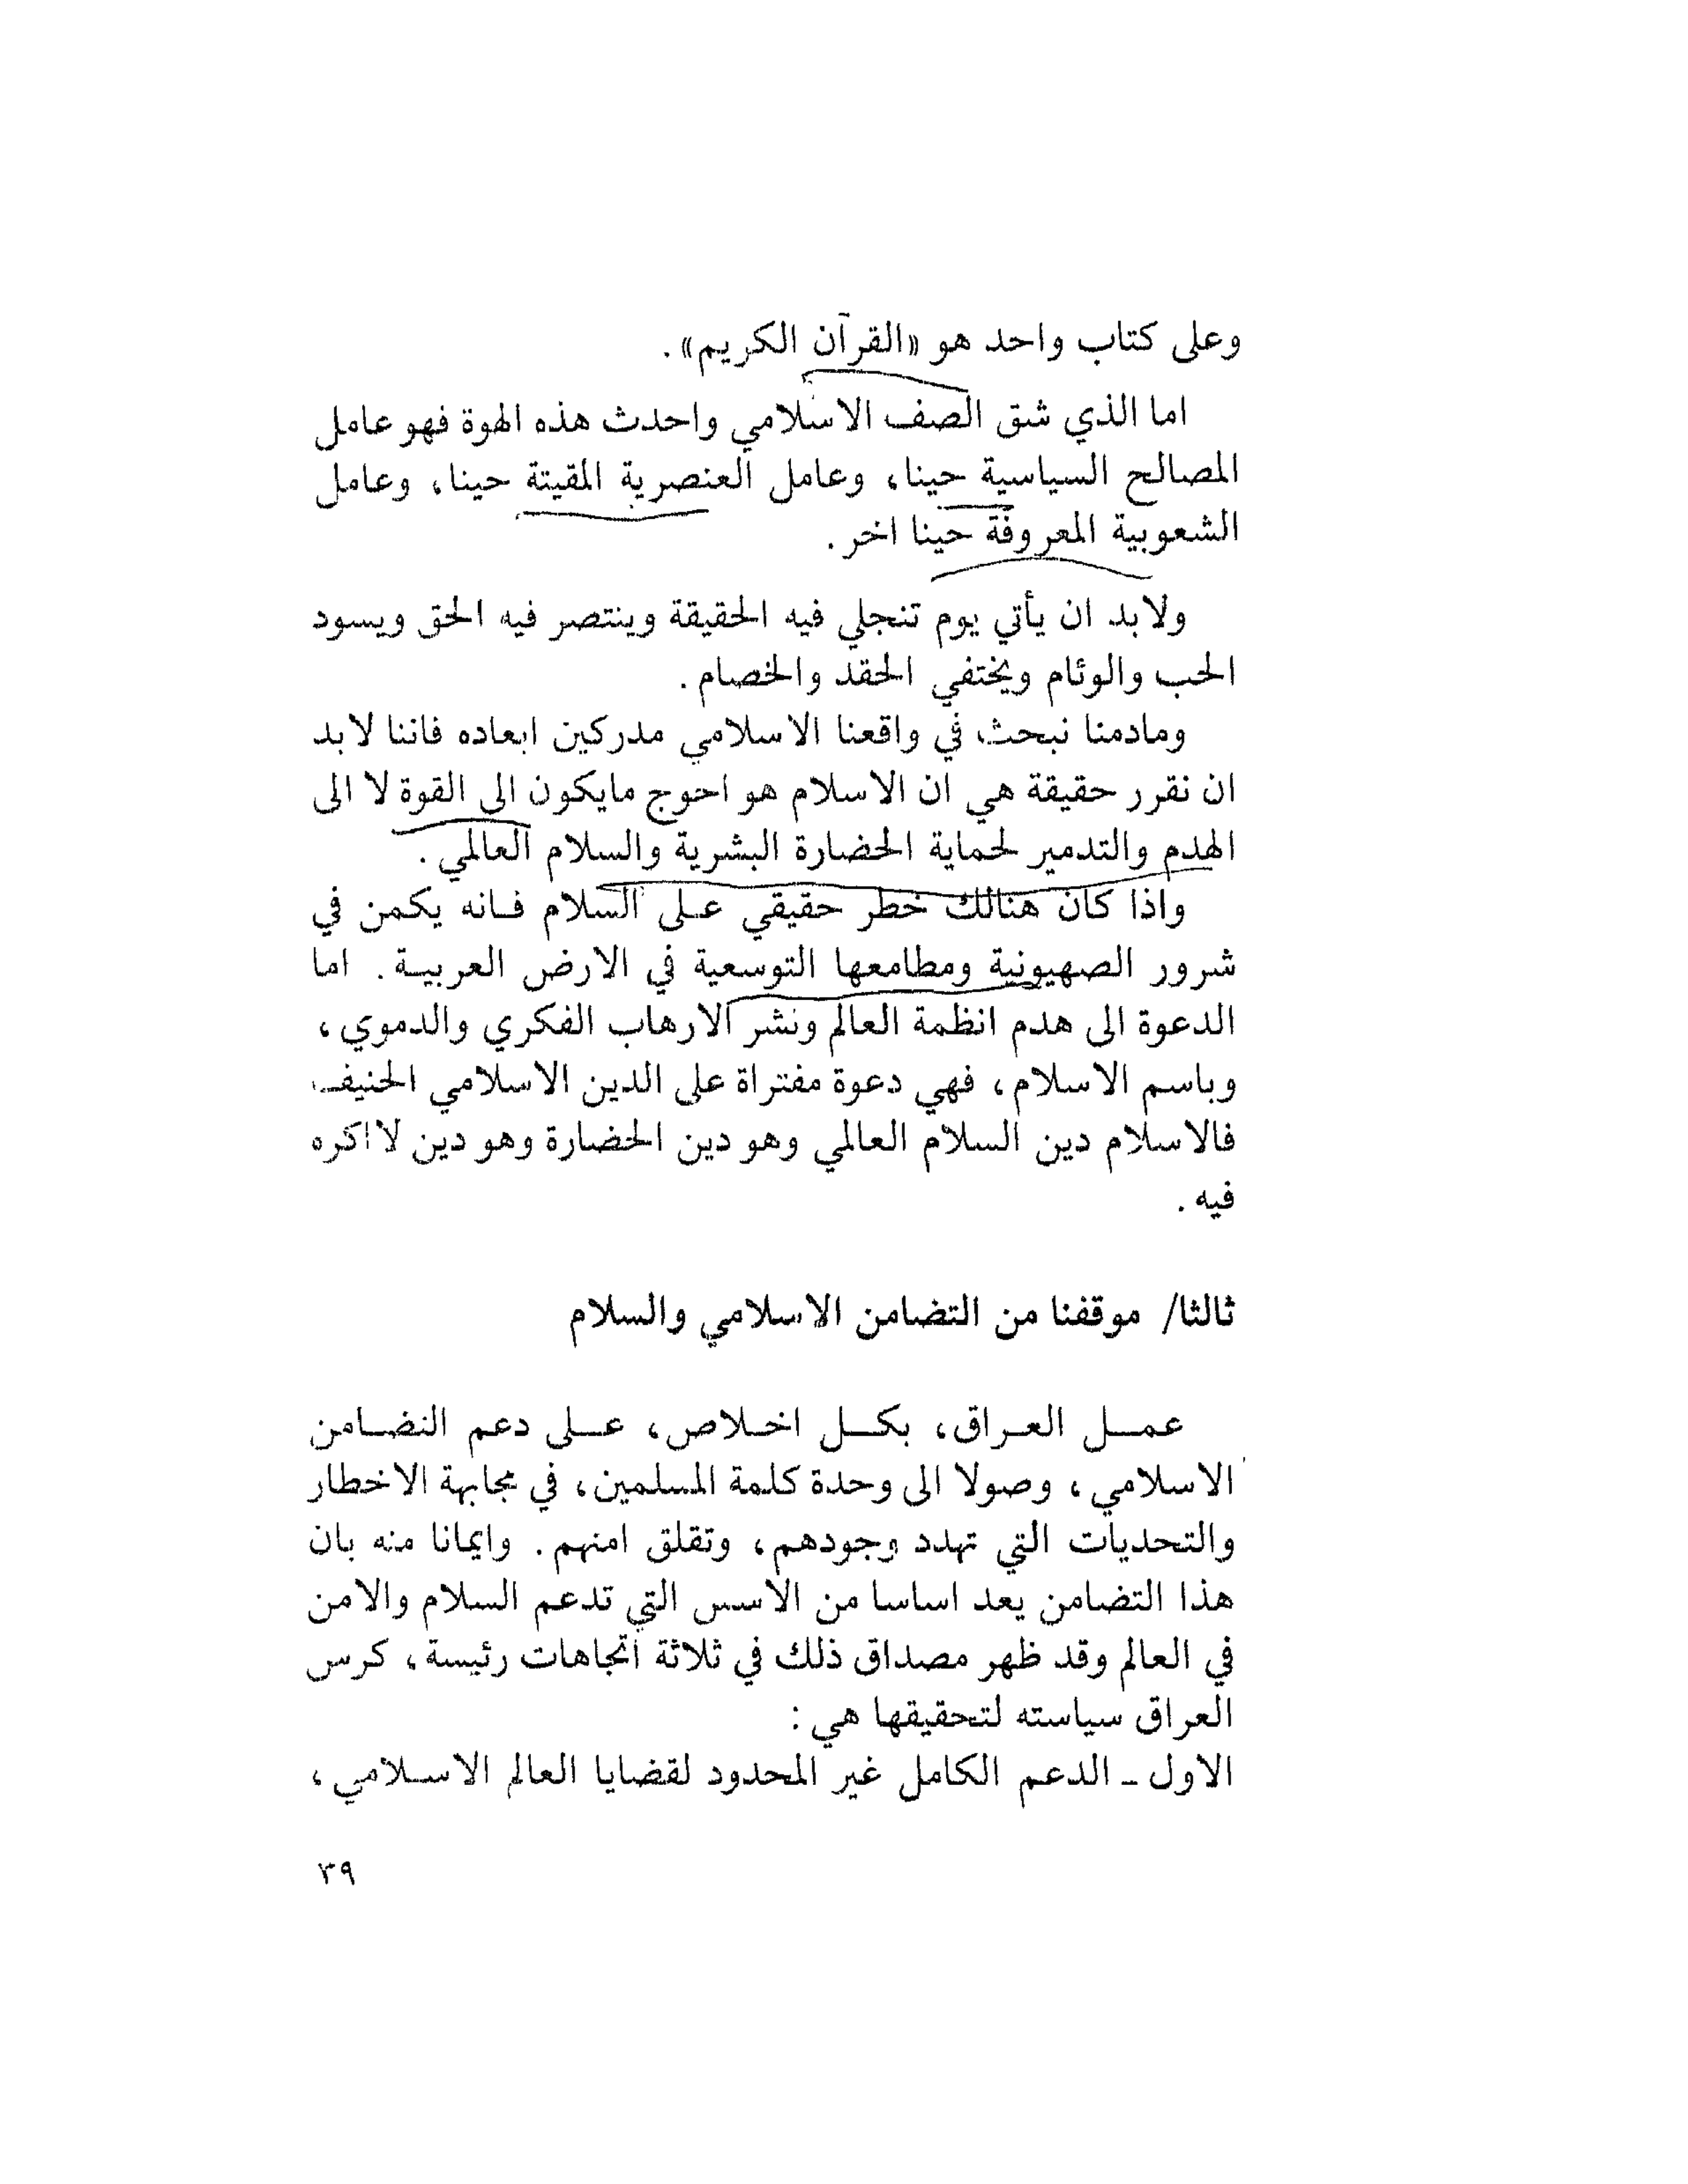 وعلى كتاب واحد هو «القرآن الكريم».
اما الذي شق الصف الاسلامي واحدث هذه الهوة فهو عامل
المصالح السياسية حينا، وعامل العنصرية المقيتة حينا، وعامل
الشعوبية المعروفة حينا اخر.
ولابد ان يأتي يوم تنجلي فيه الحقيقة وينتصر فيه الحق ويسود
الحب والوئام ويختفي الحقد والخصام.
ومادمنا نبحث في واقعنا الاسلامي مدركين ابعاده فاننا لابد
ان نقرر حقيقة هي ان الاسلام هو احوج مايكون الى القوة لا الى
الهدم والتدمير لحماية الحضارة البشرية والسلام العالمي.
واذا كان هنالك خطر حقيقي على السلام فانه يكمن في
شرور الصهيونية ومطامعها التوسعية في الارض العربية. اما
الدعوة الى هدم انظمة العالم ونشر الارهاب الفكري والدموي،
وباسم الاسلام، فهي دعوة مفتراة على الدين الاسلامي الحنيف
فالاسلام دين السلام العالمي وهو دين الحضارة وهو دين لا اكره
فيه.
ثالثا/ موقفنا من التضامن الاسلامي والسلام
عمل العراق، بكل اخلاص، على دعم التضامن
الاسلامي، وصولا الى وحدة كلمة المسلمين، في مجابهة الاخطار
والتحديات التي تهدد وجودهم، وتقلق امنهم. وايمانا منه بان
هذا التضامن يعد اساسا من الاسس التي تدعم السلام والامن
في العالم وقد ظهر مصداق ذلك في ثلاثة اتجاهات رئيسة، كرس
العراق سياسته لتحقيقها هي:
الاول ـ الدعم الكامل غير المحدود لقضايا العالم الاسلامي،
٣٩